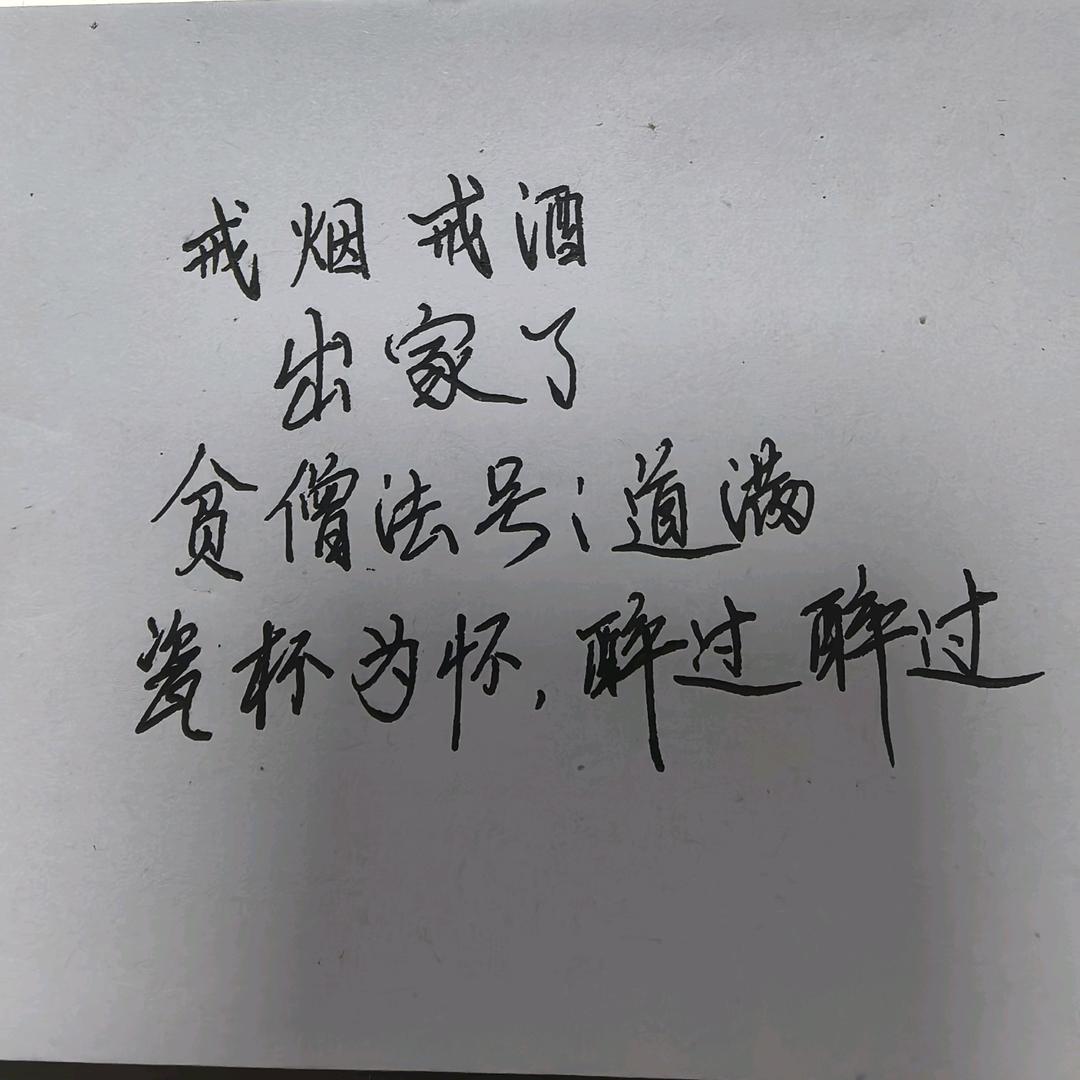 戒烟戒酒
出家了
贫僧法号:道满
瓷杯为怀,醉过醉过